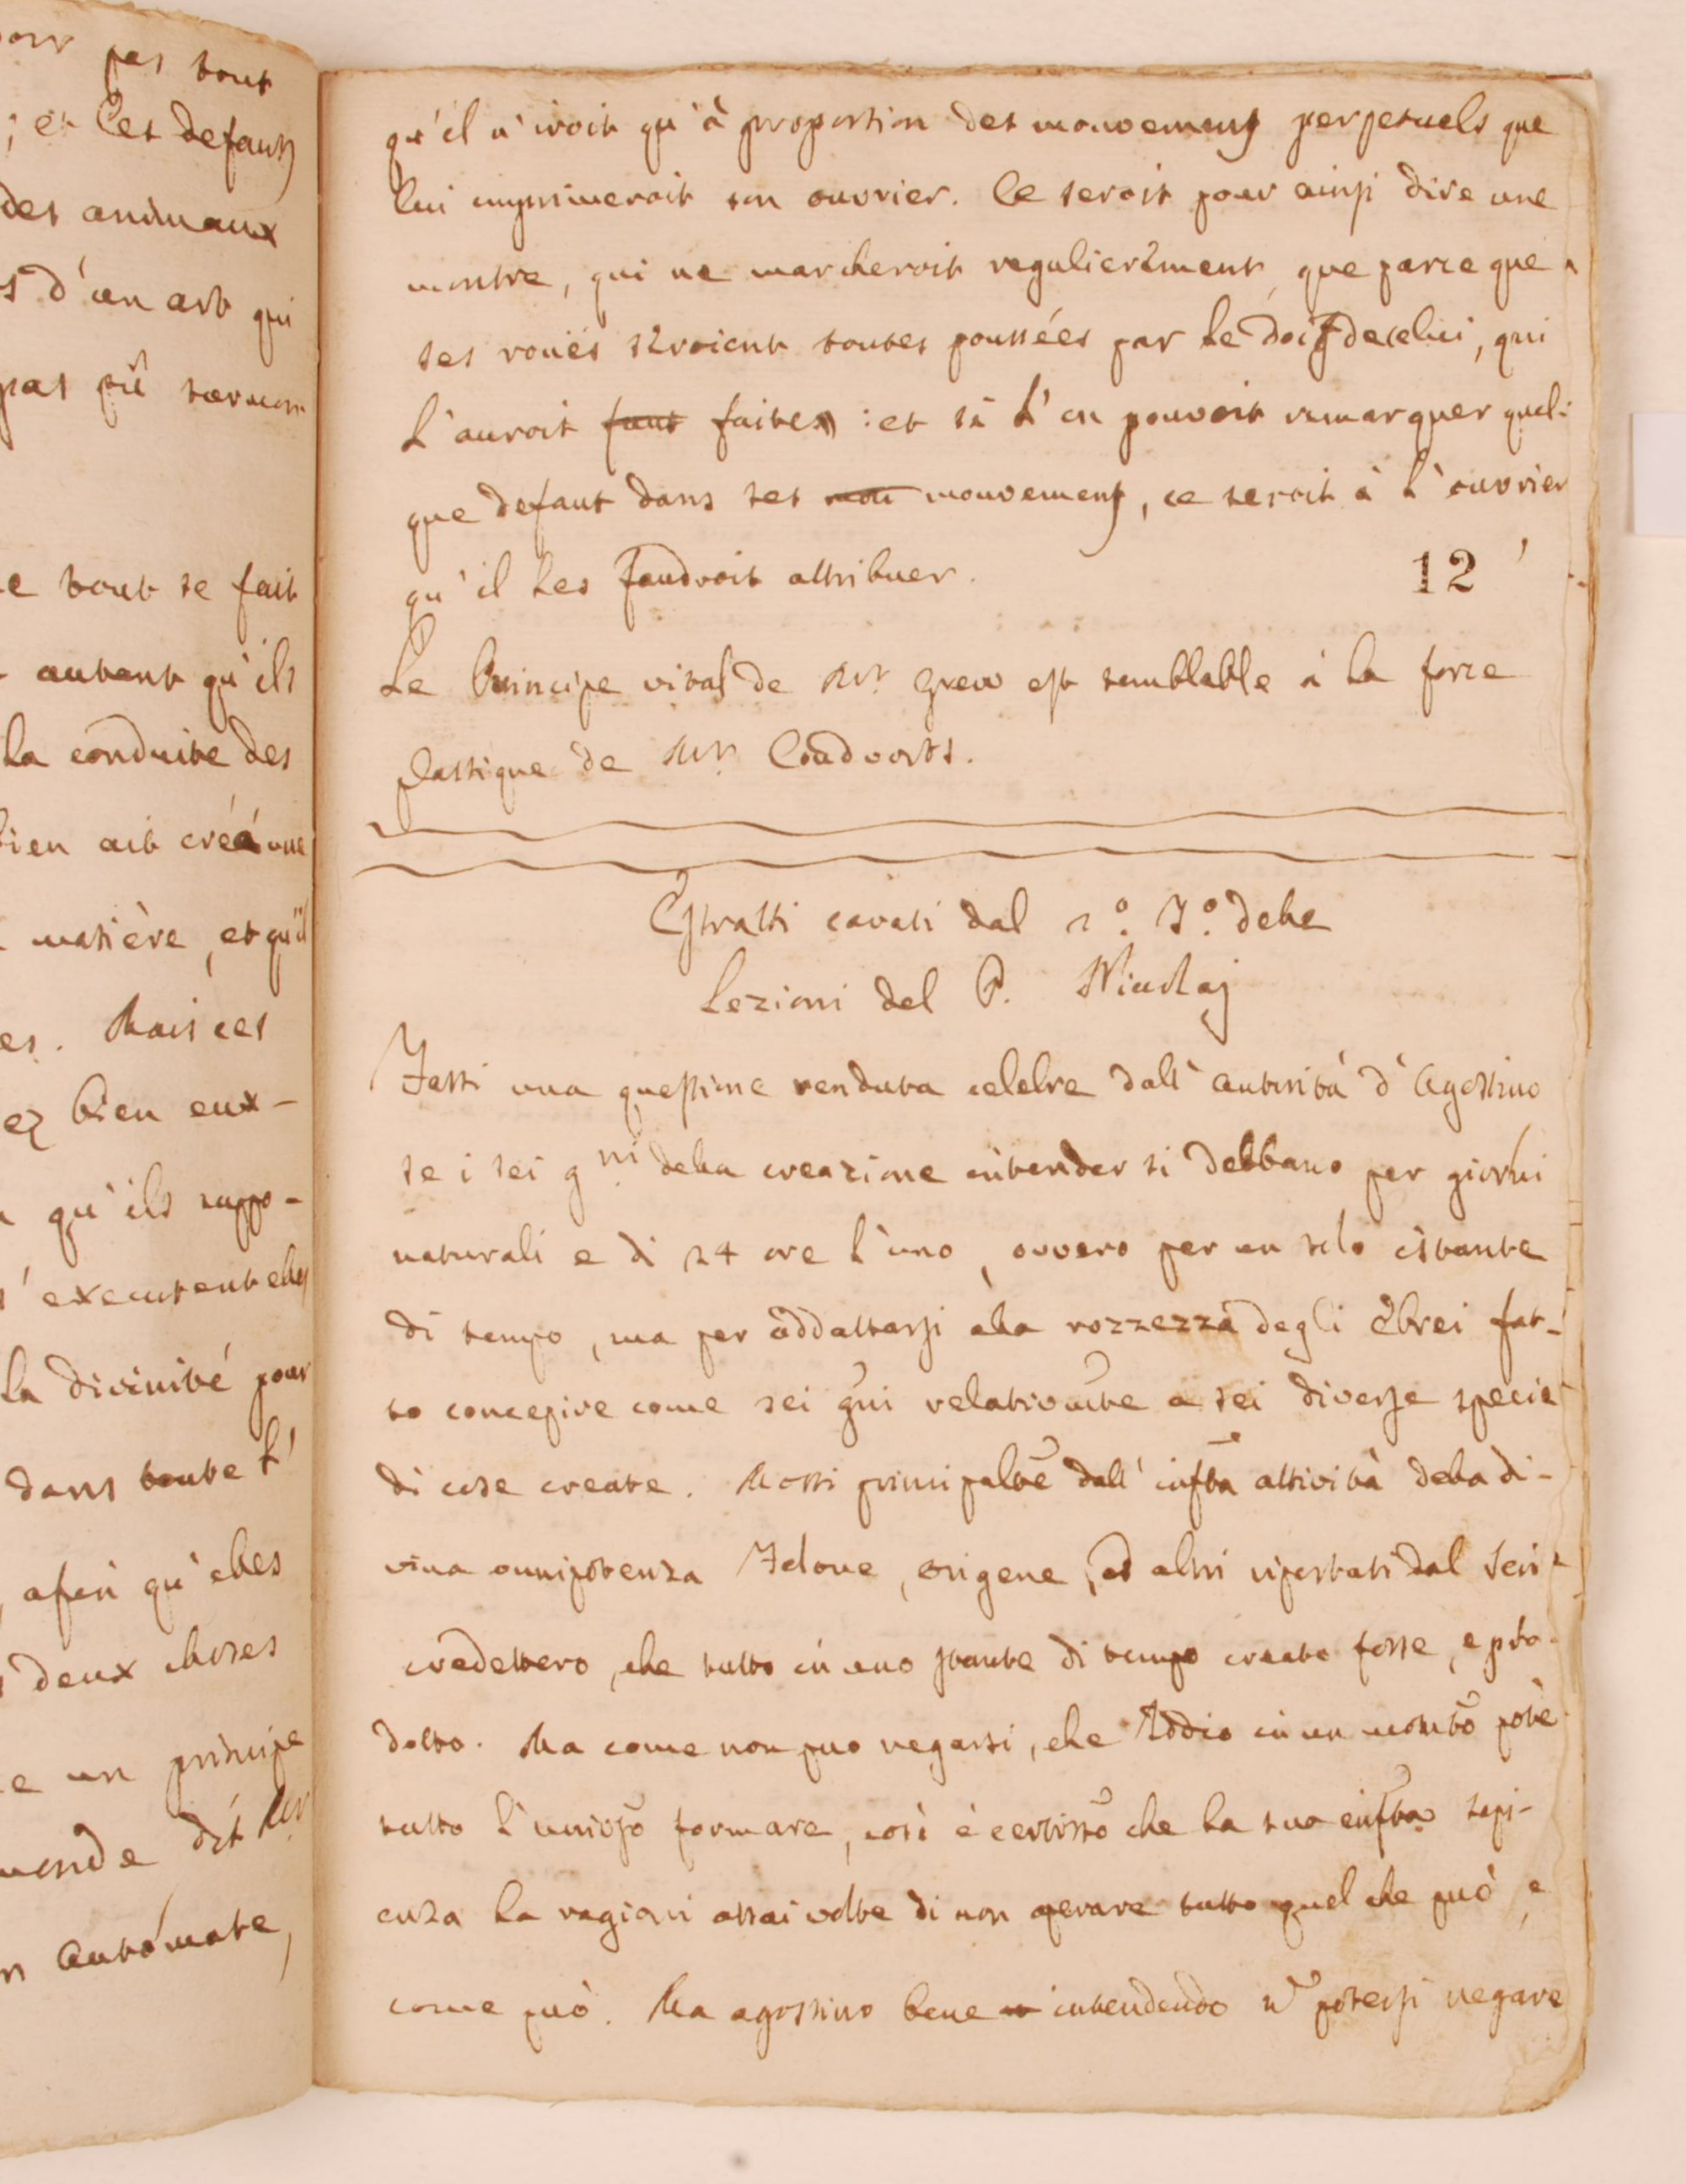 pas tout
; et les defauts
des animaux
s d'un art qui
pas pû
e tout se fait
autant qu'ils
la conduite des
ien ait créé une
matière, et qu'il
es. Mais ces
ez bien eux-
qu'ils suppo-
s'executent elles
la divinité pour
dans toute l'
, afin qu'elles
deux choses
e un principe
monde dit Mr
n automate,
qu'il n'iroit qu'à proportion des mouvemens perpetuels que
lui imprimeroit son ouvrier. Ce seroit pour ainsi dire une
montre, qui ne marcheroit regulierement que parce que
ses roües seroient toutes poussées par le doigt de celui, qui
l'auroit faut faites : et si l'on pouvoit remarquer quel:
que defaut dans ses mou mouvemens, ce seroit à l'ouvrier
qu'il les faudroit attribuer.
12
Le Principe vital de Mr. Grew est semblable à la force
plastique de Mr. Coudvorts.
Estratti cavati dal 1º. Tº. delle
Lezioni del P. Nicolaj
Fassi una questione renduta celebre dall'autorità d'Agostino
se i sei gni. della creazione intender si debbano per giorni
naturali e di 24 ore l'uno, ovvero per un solo istante
di tempo, ma per addattarsi alla rozzezza degli Ebrei fat-
to concepire come sei gni relativamte a sei diverse specie
di cose create. Mossi principalte dall'infta attività della di-
vina onnipotenza Filone, Origene, ed altri riportati dal
credettero, che tutto in uno stante di tempo creato fosse, e pro-
dotto. Ma come non puo negarsi, che Iddio in un momto potè
tutto l'univso formare, così è certissº che la sua infta sapi-
enza ha ragioni assai volte di non operare tutto quel che può, e
come può. Ma agostino bene intendendo nō potersi negare